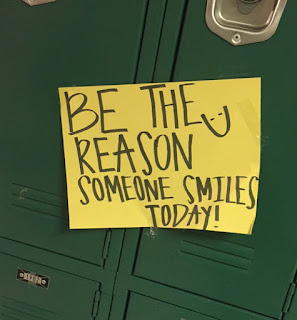 BE THE
REASON
SOMEONE SMILES
TODAY!